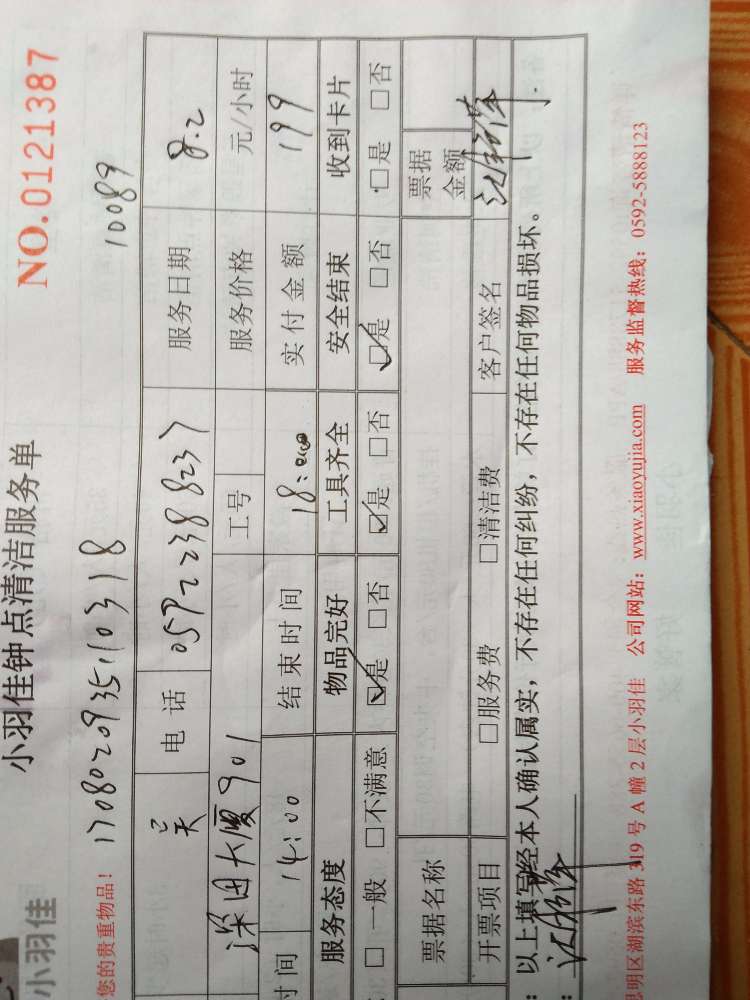 小羽佳
小羽佳钟点清洁服务单
NO.0121387
您的贵重物品!
1708020935110318
10089
吴
电 话
05922238823
服务日期
8.2
深田大厦901
工号
服务价格
元/小时
时间
14:00
结束时间
18:00
实付金额
199
服务态度
物品完好
工具齐全
安全结束
收到卡片
□ 一般 □不满意
☑是 □否
☑是 □否
☑是 □否
□是 □否
票据名称
票据
金额
开票项目
□服务费
□清洁费
客户签名
以上填写经本人确认属实,不存在任何纠纷,不存在任何物品损坏。
思明区湖滨东路 319 号 A 幢 2 层小羽佳 公司网站: www.xiaoyujia.com 服务监督热线: 0592-5888123